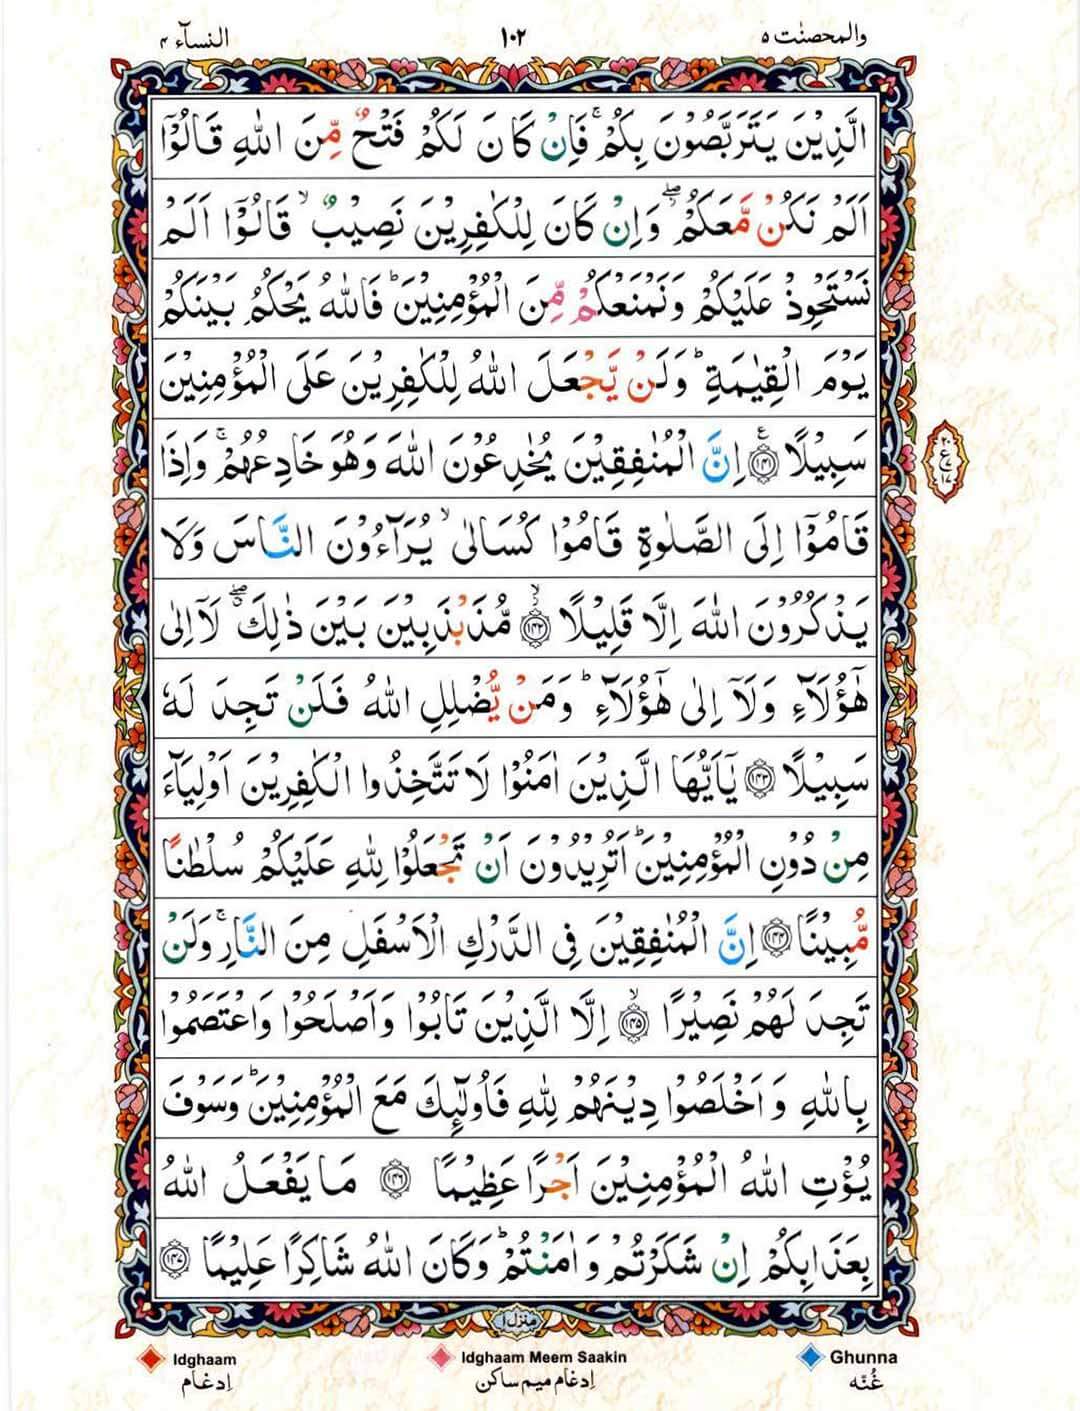 والمحصنٰت ٥ ١٠٢ النسآء ٤
الَّذِيْنَ يَتَرَبَّصُوْنَ بِكُمْ ۚ فَاِنْ كَانَ لَكُمْ فَتْحٌ مِّنَ اللّٰهِ قَالُوْۤا
اَلَمْ نَكُنْ مَّعَكُمْ ۖ وَاِنْ كَانَ لِلْكٰفِرِيْنَ نَصِيْبٌ ۙ قَالُوْۤا اَلَمْ
نَسْتَحْوِذْ عَلَيْكُمْ وَنَمْنَعْكُمْ مِّنَ الْمُؤْمِنِيْنَ ؕ فَاللّٰهُ يَحْكُمُ بَيْنَكُمْ
يَوْمَ الْقِيٰمَةِ ؕ وَلَنْ يَّجْعَلَ اللّٰهُ لِلْكٰفِرِيْنَ عَلَى الْمُؤْمِنِيْنَ
سَبِيْلًا ﴿١٤١﴾ اِنَّ الْمُنٰفِقِيْنَ يُخٰدِعُوْنَ اللّٰهَ وَهُوَ خَادِعُهُمْ ۚ وَاِذَا
قَامُوْۤا اِلَى الصَّلٰوةِ قَامُوْا كُسَالٰى ۙ يُرَآءُوْنَ النَّاسَ وَلَا
يَذْكُرُوْنَ اللّٰهَ اِلَّا قَلِيْلًا ﴿١٤٢﴾ مُّذَبْذَبِيْنَ بَيْنَ ذٰلِكَ ۖ لَاۤ اِلٰى
هٰۤؤُلَآءِ وَلَاۤ اِلٰى هٰۤؤُلَآءِ ؕ وَمَنْ يُّضْلِلِ اللّٰهُ فَلَنْ تَجِدَ لَهٗ
سَبِيْلًا ﴿١٤٣﴾ يٰۤاَيُّهَا الَّذِيْنَ اٰمَنُوْا لَا تَتَّخِذُوا الْكٰفِرِيْنَ اَوْلِيَآءَ
مِنْ دُوْنِ الْمُؤْمِنِيْنَ ؕ اَتُرِيْدُوْنَ اَنْ تَجْعَلُوْا لِلّٰهِ عَلَيْكُمْ سُلْطٰنًا
مُّبِيْنًا ﴿١٤٤﴾ اِنَّ الْمُنٰفِقِيْنَ فِى الدَّرْكِ الْاَسْفَلِ مِنَ النَّارِ ۚ وَلَنْ
تَجِدَ لَهُمْ نَصِيْرًا ﴿١٤٥﴾ اِلَّا الَّذِيْنَ تَابُوْا وَاَصْلَحُوْا وَاعْتَصَمُوْا
بِاللّٰهِ وَاَخْلَصُوْا دِيْنَهُمْ لِلّٰهِ فَاُولٰٓئِكَ مَعَ الْمُؤْمِنِيْنَ ؕ وَسَوْفَ
يُؤْتِ اللّٰهُ الْمُؤْمِنِيْنَ اَجْرًا عَظِيْمًا ﴿١٤٦﴾ مَا يَفْعَلُ اللّٰهُ
بِعَذَابِكُمْ اِنْ شَكَرْتُمْ وَاٰمَنْتُمْ ؕ وَكَانَ اللّٰهُ شَاكِرًا عَلِيْمًا ﴿١٤٧﴾
٢٠ ع ٧ ١٧
منزل ١
Idghaam Idghaam Meem Saakin Ghunna
اِدغام اِدغام ميم ساكن غُنّه